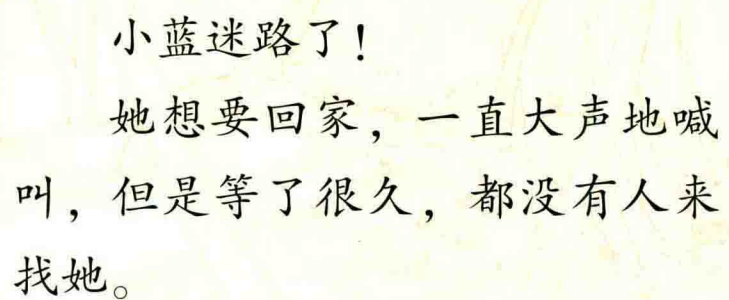 小蓝迷路了！
她想要回家，一直大声地喊
叫，但是等了很久，都没有人来
找她。